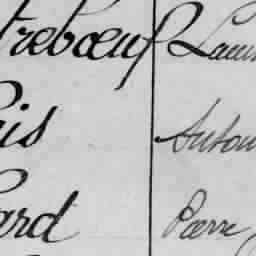 trebœuf Laur
is Antoi
ard Pierre